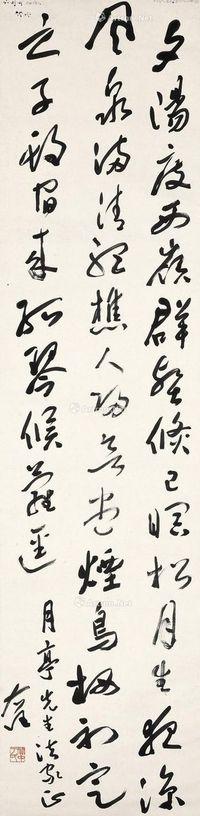 夕陽度西嶺群壑倏已暝松月生夜涼
風泉滿清聽樵人歸欲盡煙鳥栖初定
之子期宿來孤琴候蘿逕
月亭先生法家正
右任